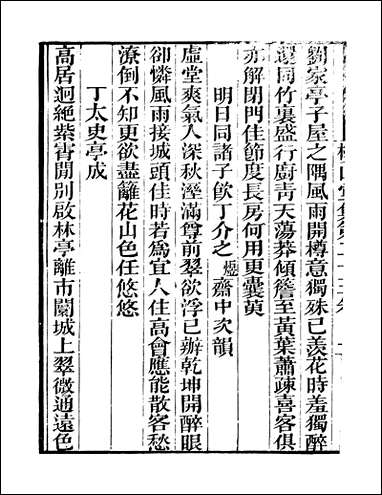 劉家亭子屋之隅風雨開樽意獨殊已羨花時羞獨醉
還同竹裏盛行廚青天蕩莽傾簷至黃葉蕭疎喜客俱
亦解閉門佳節度長房何用更囊萸
明日同諸子飲丁介之𤋮齋中次韻
虛堂爽氣入深秋溼滿尊前翠欲浮已辦乾坤開醉眼
卻憐風雨接城頭佳時若為宜人住高會應能散客愁
潦倒不知更欲盡籬花山色任悠悠
丁太史亭成
高居迥絶紫霄開別啟林亭離市闤城上翠微通遠色